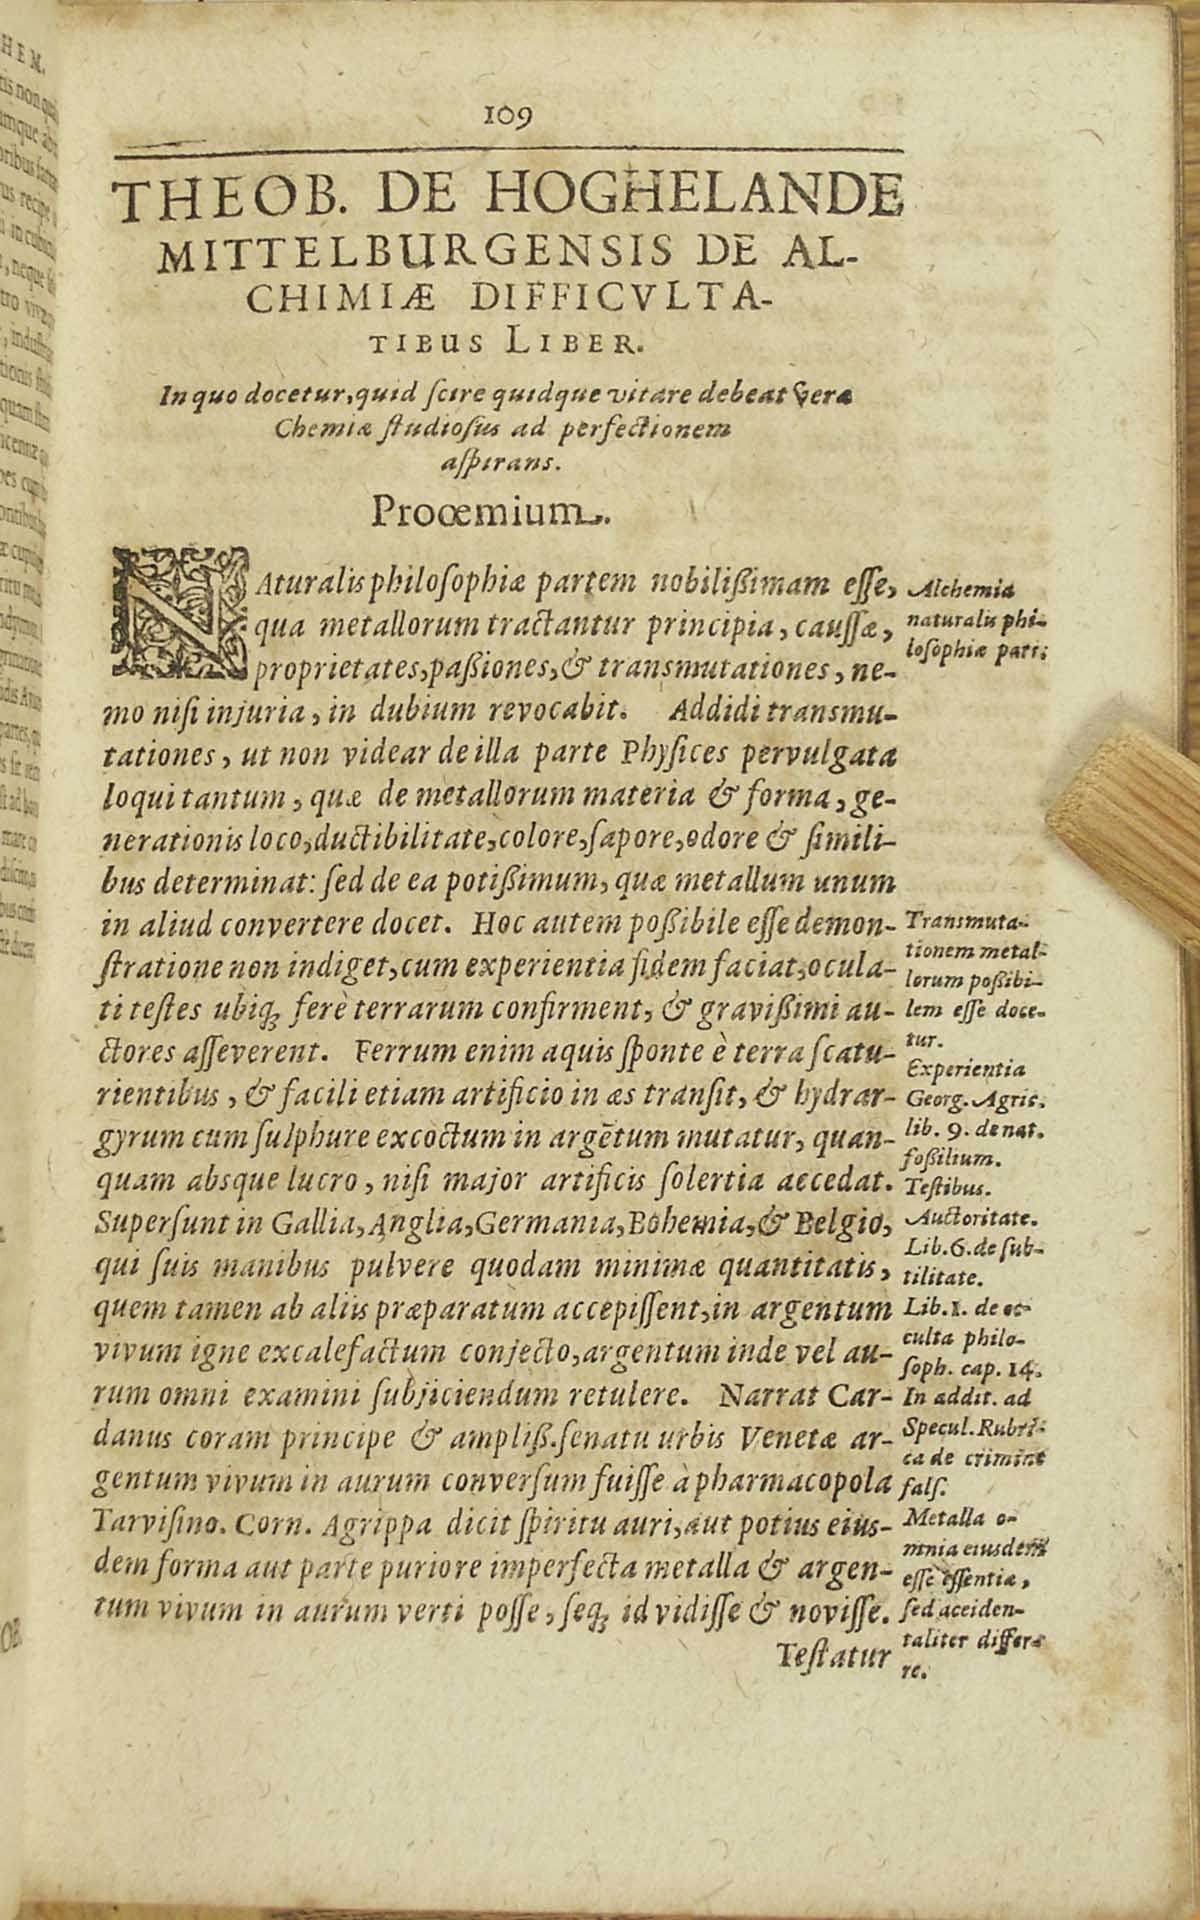 109
THEOB. DE HOGHELANDE
MITTELBURGENSIS DE AL-
CHIMIÆ DIFFICVLTA-
TIBUS LIBER.
In quo docetur, quid scire quidque vitare debeat veræ
Chemiæ studiosus ad perfectionem
aspirans.
Proœmium.
NAturalis philosophiæ partem nobilißimam esse,
qua metallorum tractantur principia, caussæ,
proprietates, paßiones, & transmutationes, ne-
mo nisi injuria, in dubium revocabit. Addidi transmu-
tationes, ut non videar de illa parte Physices pervulgata
loqui tantum, quæ de metallorum materia & forma, ge-
nerationis loco, ductibilitate, colore, sapore, odore & simili-
bus determinat: sed de ea potißimum, quæ metallum unum
in aliud convertere docet. Hoc autem poßibile esse demon-
stratione non indiget, cum experientia fidem faciat, ocula-
ti testes ubiq; ferè terrarum confirment, & gravißimi au-
ctores asseverent. Ferrum enim aquis sponte è terra scatu-
rientibus, & facili etiam artificio in æs transit, & hydrar-
gyrum cum sulphure excoctum in argẽtum mutatur, quan-
quam absque lucro, nisi major artificis solertia accedat.
Supersunt in Gallia, Anglia, Germania, Bohemia, & Belgio,
qui suis manibus pulvere quodam minimæ quantitatis,
quem tamen ab aliis præparatum accepissent, in argentum
vivum igne excalefactum conjecto, argentum inde vel au-
rum omni examini subjiciendum retulere. Narrat Car-
danus coram principe & ampliß. senatu urbis Venetæ ar-
gentum vivum in aurum conversum fuisse à pharmacopola
Tarvisino. Corn. Agrippa dicit spiritu auri, aut potius eius-
dem forma aut parte puriore imperfecta metalla & argen-
tum vivum in aurum verti posse, seq; id vidisse & novisse.
Testatur
Alchemia
naturalis phi-
losophiæ pars.
Transmuta-
tionem metal-
lorum poßibi-
lem esse doce-
tur.
Experientia
Georg. Agric.
lib. 9. de nat.
foßilium.
Testibus.
Auctoritate.
Lib. 6. de sub-
tilitate.
Lib. 1. de oc-
culta philo-
soph. cap. 14.
In addit. ad
Specul. Rubri-
ca de crimine
fals.
Metalla o-
mnia eiusdem
esse essentiæ,
sed acciden-
taliter differe-
re.